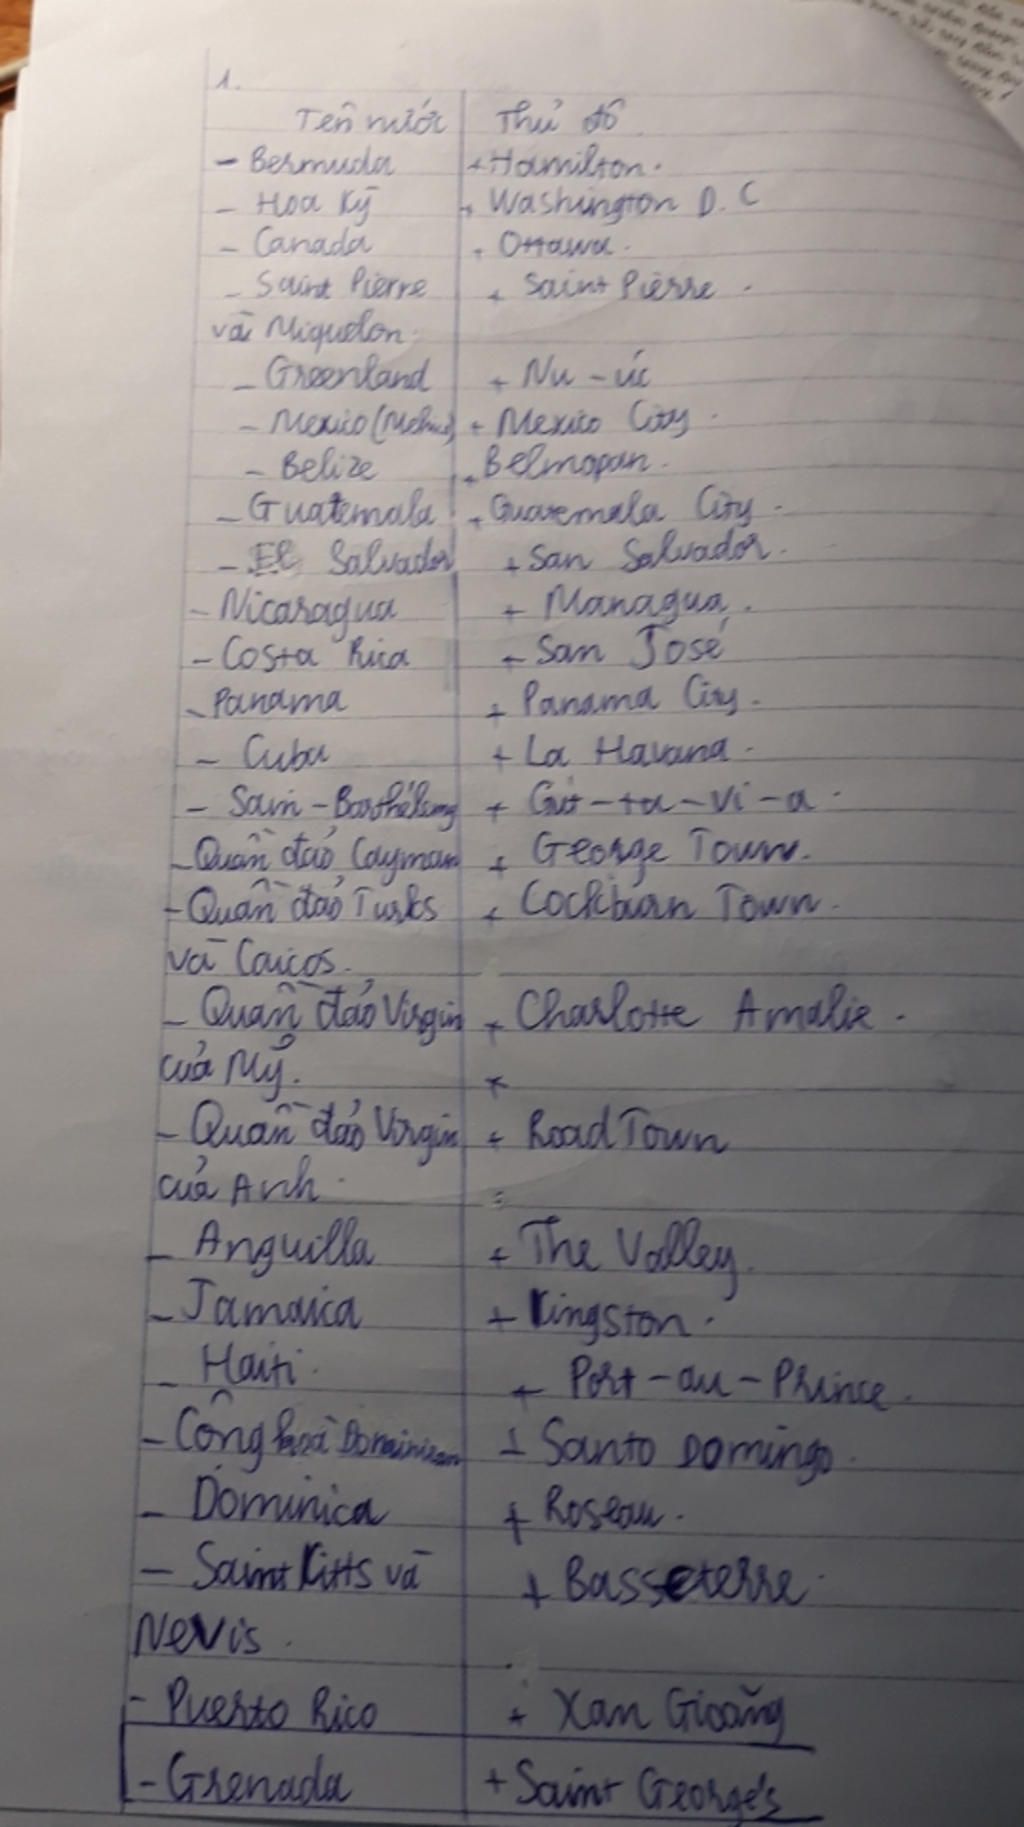 1.
Tên nước Thủ đô
- Bermuda + Hamilton.
- Hoa Kỳ + Washington D.C
- Canada + Ottawa.
- Saint Pierre + Saint Pierre.
và Miquelon.
- Greenland + Nu-úc
- Mexico (Mêhicô) + Mexico City.
- Belize + Belmopan.
- Guatemala + Guatemala City.
- El Salvador + San Salvador.
- Nicaragua + Managua.
- Costa Rica + San José
- Panama + Panama City.
- Cuba + La Havana.
- Sain-Barthélemy + Gút-ta-vi-a.
- Quần đảo Cayman + George Town.
- Quần đảo Turks + Cockburn Town.
và Caicos.
- Quần đảo Virgin + Charlotte Amalie.
của Mỹ.
- Quần đảo Virgin + Road Town
của Anh.
- Anguilla + The Valley.
- Jamaica + Kingston.
- Haiti. + Port-au-Prince.
- Cộng hoà Dominican + Santo Domingo.
- Dominica + Roseau.
- Saint Kitts và + Basseterre.
Nevis.
- Puerto Rico + Xan Gioăng
- Grenada + Saint George's